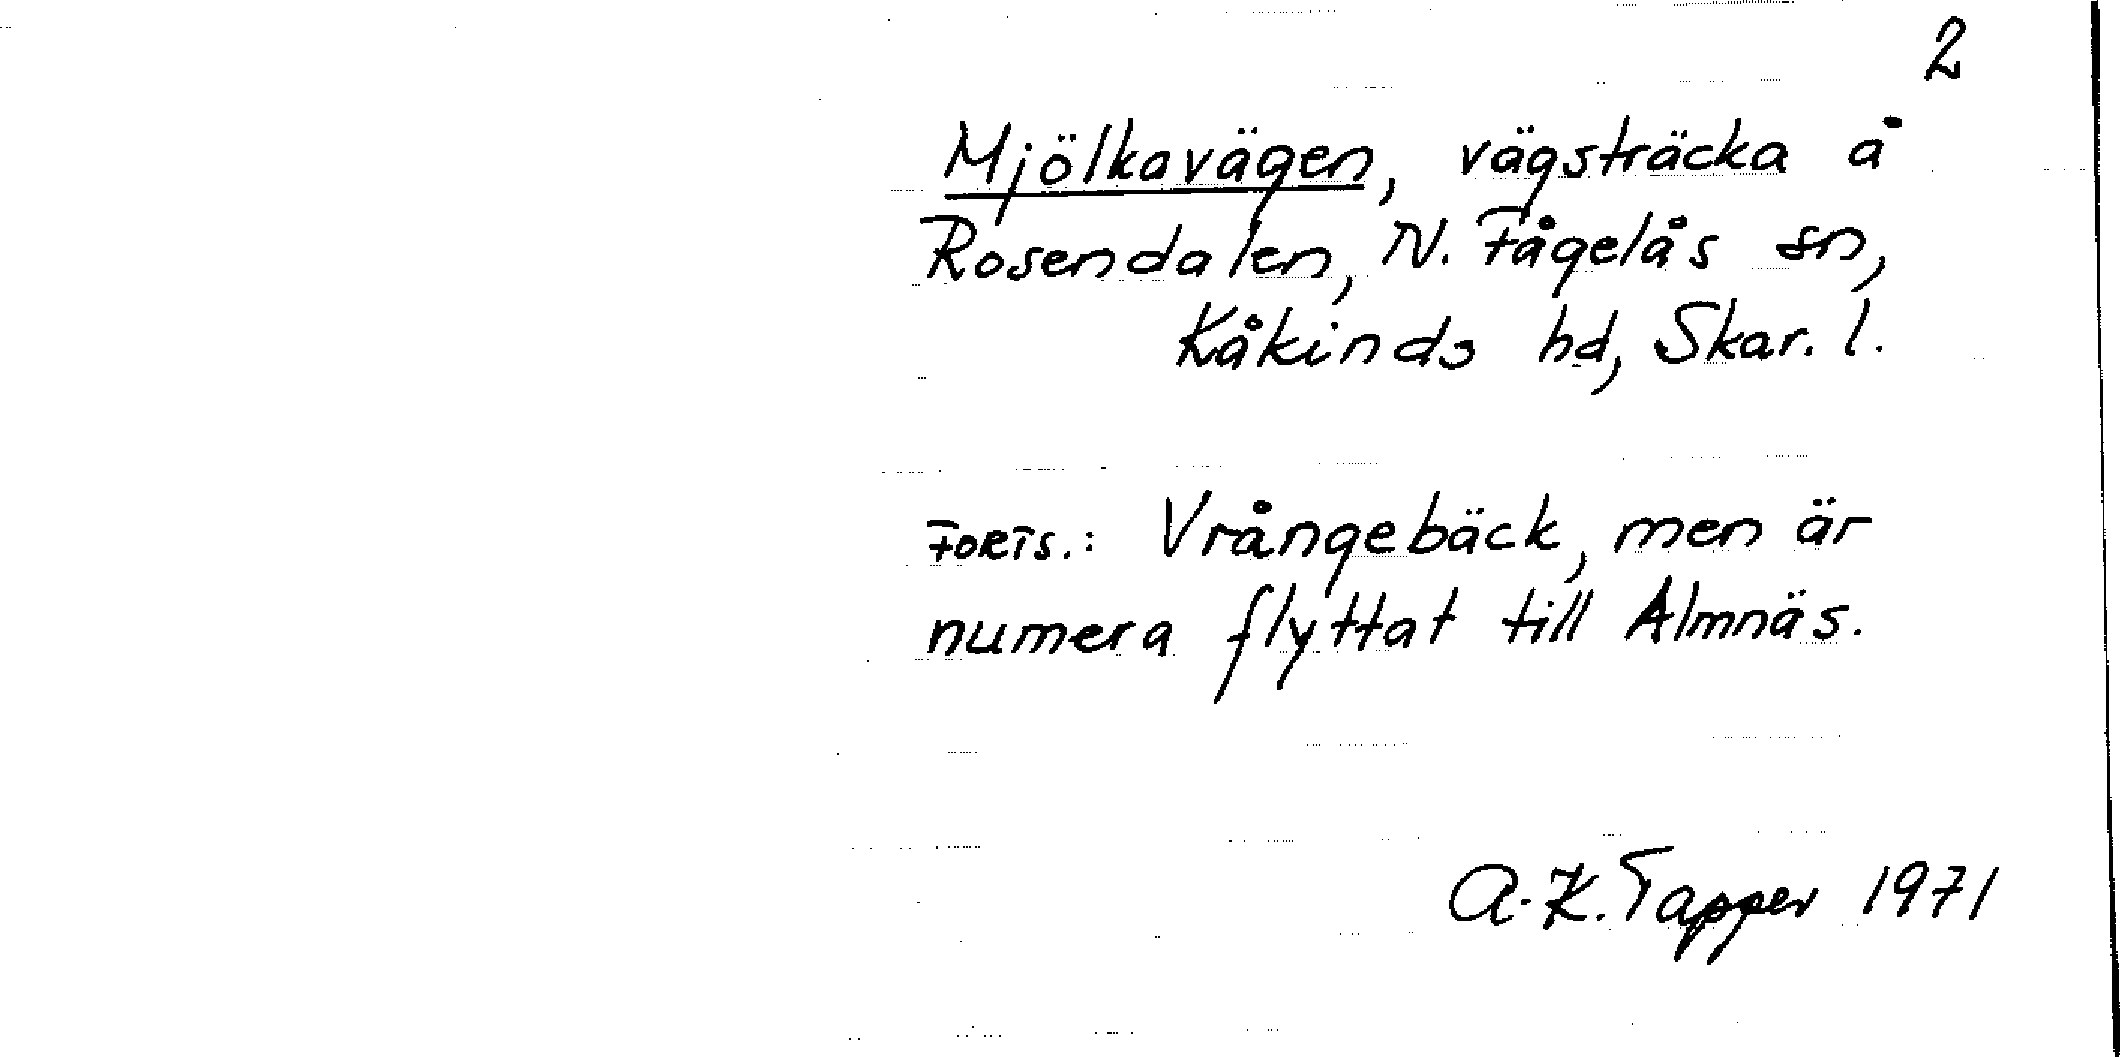 2
Mjölkavägen, vägsträcka å
Rosendalen, N. Fågelås sn,
Kåkinds hd, Skar. l.
FORTS.: Vrångebäck, men är
numera flyttat till Almnäs.
A-K. Tapper 1971